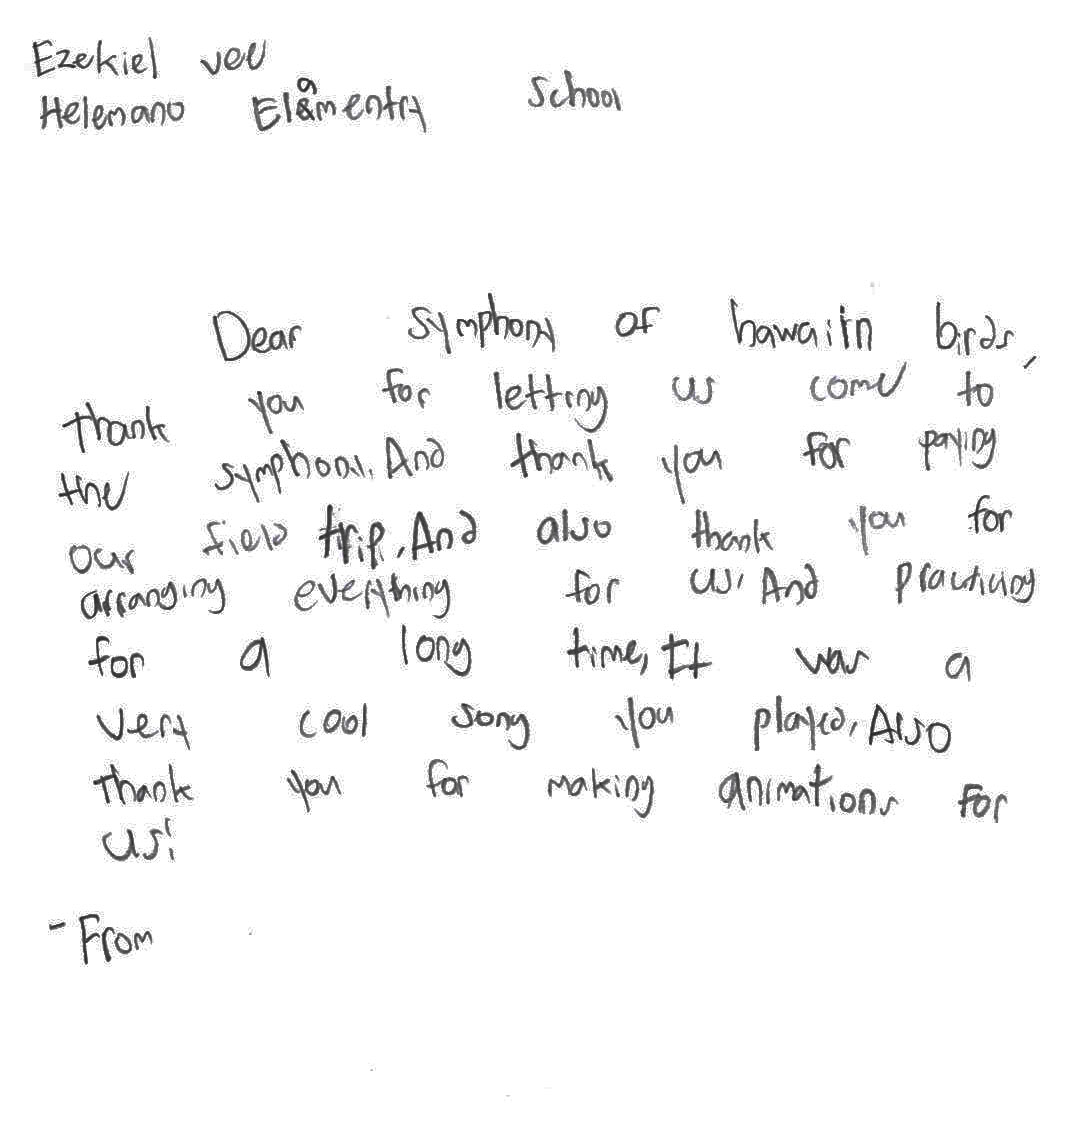 Ezekiel vee
Helemano Elamentry School
Dear symphony of hawaiin birds,
thank you for letting us come to
the symphony. And thank you for paying
our field trip. And also thank you for
arranging everything for us. And practicing
for a long time, It was a
very cool song you played, Also
thank you for making animations for
us!
- From